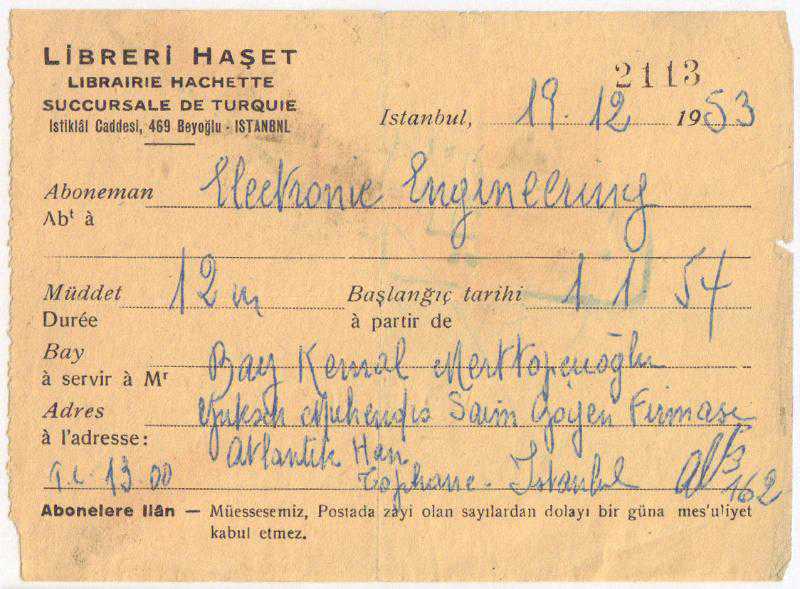 LİBRERİ HAŞET
LIBRAIRIE HACHETTE
SUCCURSALE DE TURQUIE
İstiklâl Caddesi, 469 Beyoğlu - ISTANBNL
2113
Istanbul, 19.12 1953
Aboneman Electronic Engineering
Abt à
Müddet 12 m Başlangıç tarihi 1 1 54
Durée à partir de
Bay Bay Kemal Merttopçuoğlu
à servir à Mr
Adres Yüksek Mühendis Saim Göyen Firması
à l'adresse: Atlantik Han
13 00 Tophane - Istanbul
162
Abonelere İlân — Müessesemiz, Postada zâyi olan sayılardan dolayı bir gûna mes'uliyet
kabul etmez.